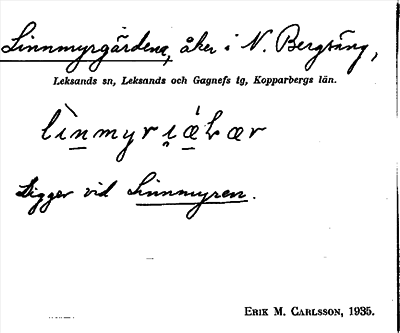 Linnmyrgärdena, åker i N. Bergsäng,
Leksands sn, Leksands och Gagnefs tg, Kopparbergs län.
Ligger vid Linnmyren.
ERIK M. CARLSSON, 1935.